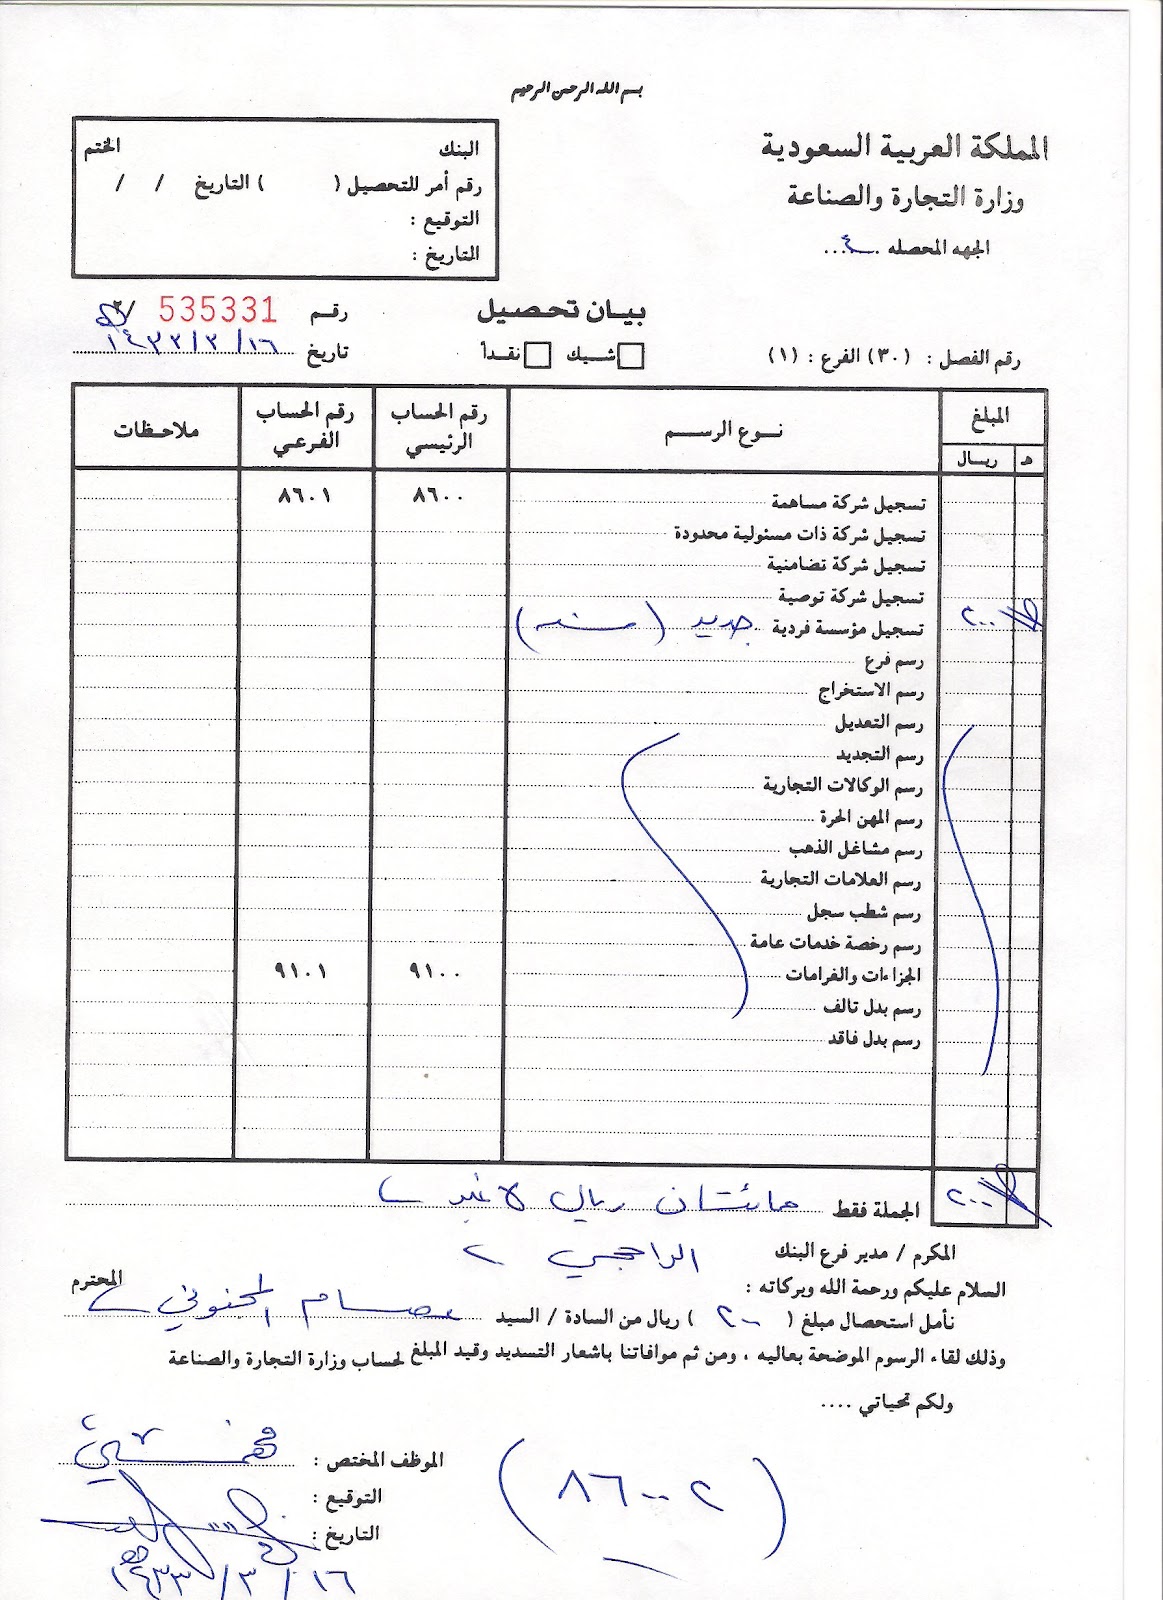 بسم الله الرحمن الرحيم
المملكة العربية السعودية
وزارة التجارة والصناعة
الجهه المحصله
البنك الختم
رقم أمر للتحصيل ( ) التاريخ / /
التوقيع :
التاريخ :
بيـان تحـصـيل
رقـم 535331
رقم الفصل : (٣٠) الفرع : (١)
شـيك نقـداً
تاريخ ١٤٣٣/٣/١٦
المبلغ نـوع الرسـم رقم الحساب الرئيسي رقم الحساب الفرعي ملاحظات
هـ ريـال
تسجيل شركة مساهمة ٨٦٠٠ ٨٦٠١
تسجيل شركة ذات مسئولية محدودة
تسجيل شركة تضامنية
تسجيل شركة توصية
٢٠٠ تسجيل مؤسسة فردية جديد ( سنه )
رسم فرع
رسم الاستخراج
رسم التعديل
رسم التجديد
رسم الوكالات التجارية
رسم المهن الحرة
رسم مشاغل الذهب
رسم العلامات التجارية
رسم شطب سجل
رسم رخصة خدمات عامة
الجزاءات والغرامات ٩١٠٠ ٩١٠١
رسم بدل تالف
رسم بدل فاقد
٢٠٠
الجملة فقط مائتان ريال لا غير
المكرم / مدير فرع البنك الراجحي
المحترم
السلام عليكم ورحمة الله وبركاته :
نأمل استحصال مبلغ ( ٢٠٠ ) ريال من السادة / السيد عصام
وذلك لقاء الرسوم الموضحة بعاليه ، ومن ثم موافاتنا باشعار التسديد وقيد المبلغ لحساب وزارة التجارة والصناعة
ولكم تحياتي ....
الموظف المختص :
التوقيع :
التاريخ : ١٤٣٣/٣/١٦
( ٨٦٠٠٢ )